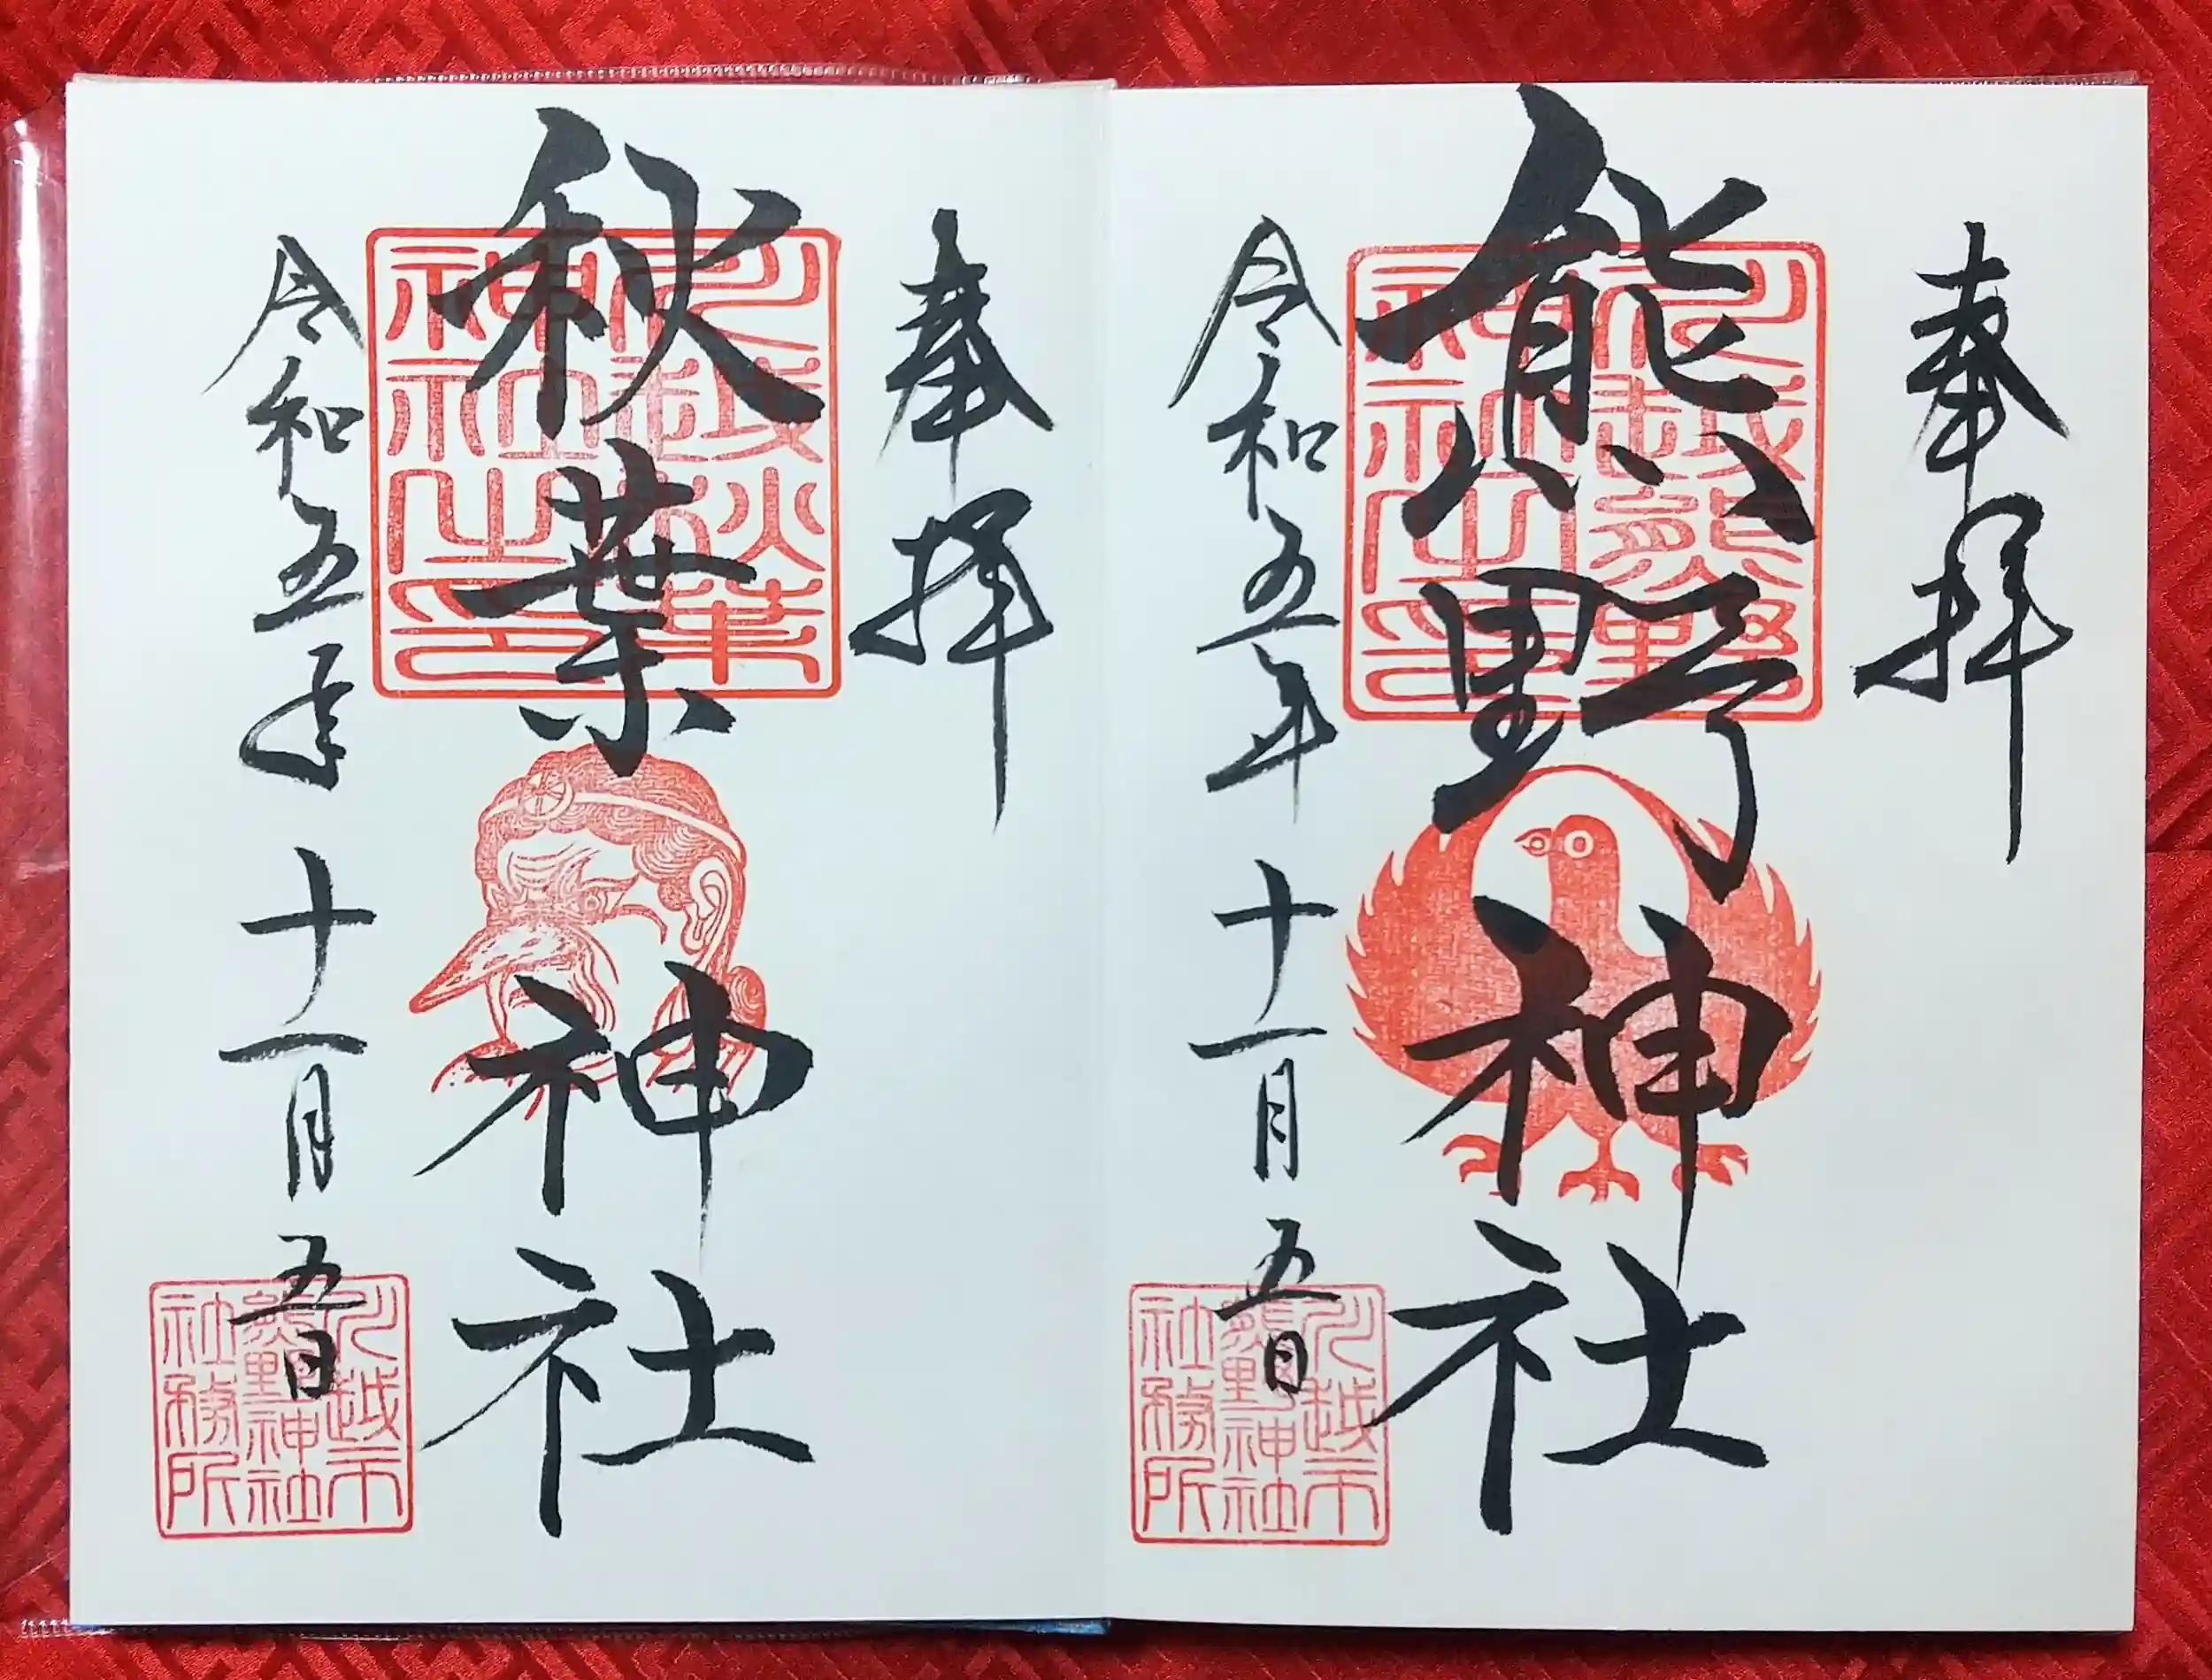 奉拝
熊野神社
令和五年十一月五日
川越熊野
神社之印
川越市
熊野神社
社務所
奉拝
秋葉神社
令和五年十一月五日
川越秋葉
神社之印
川越市
熊野神社
社務所